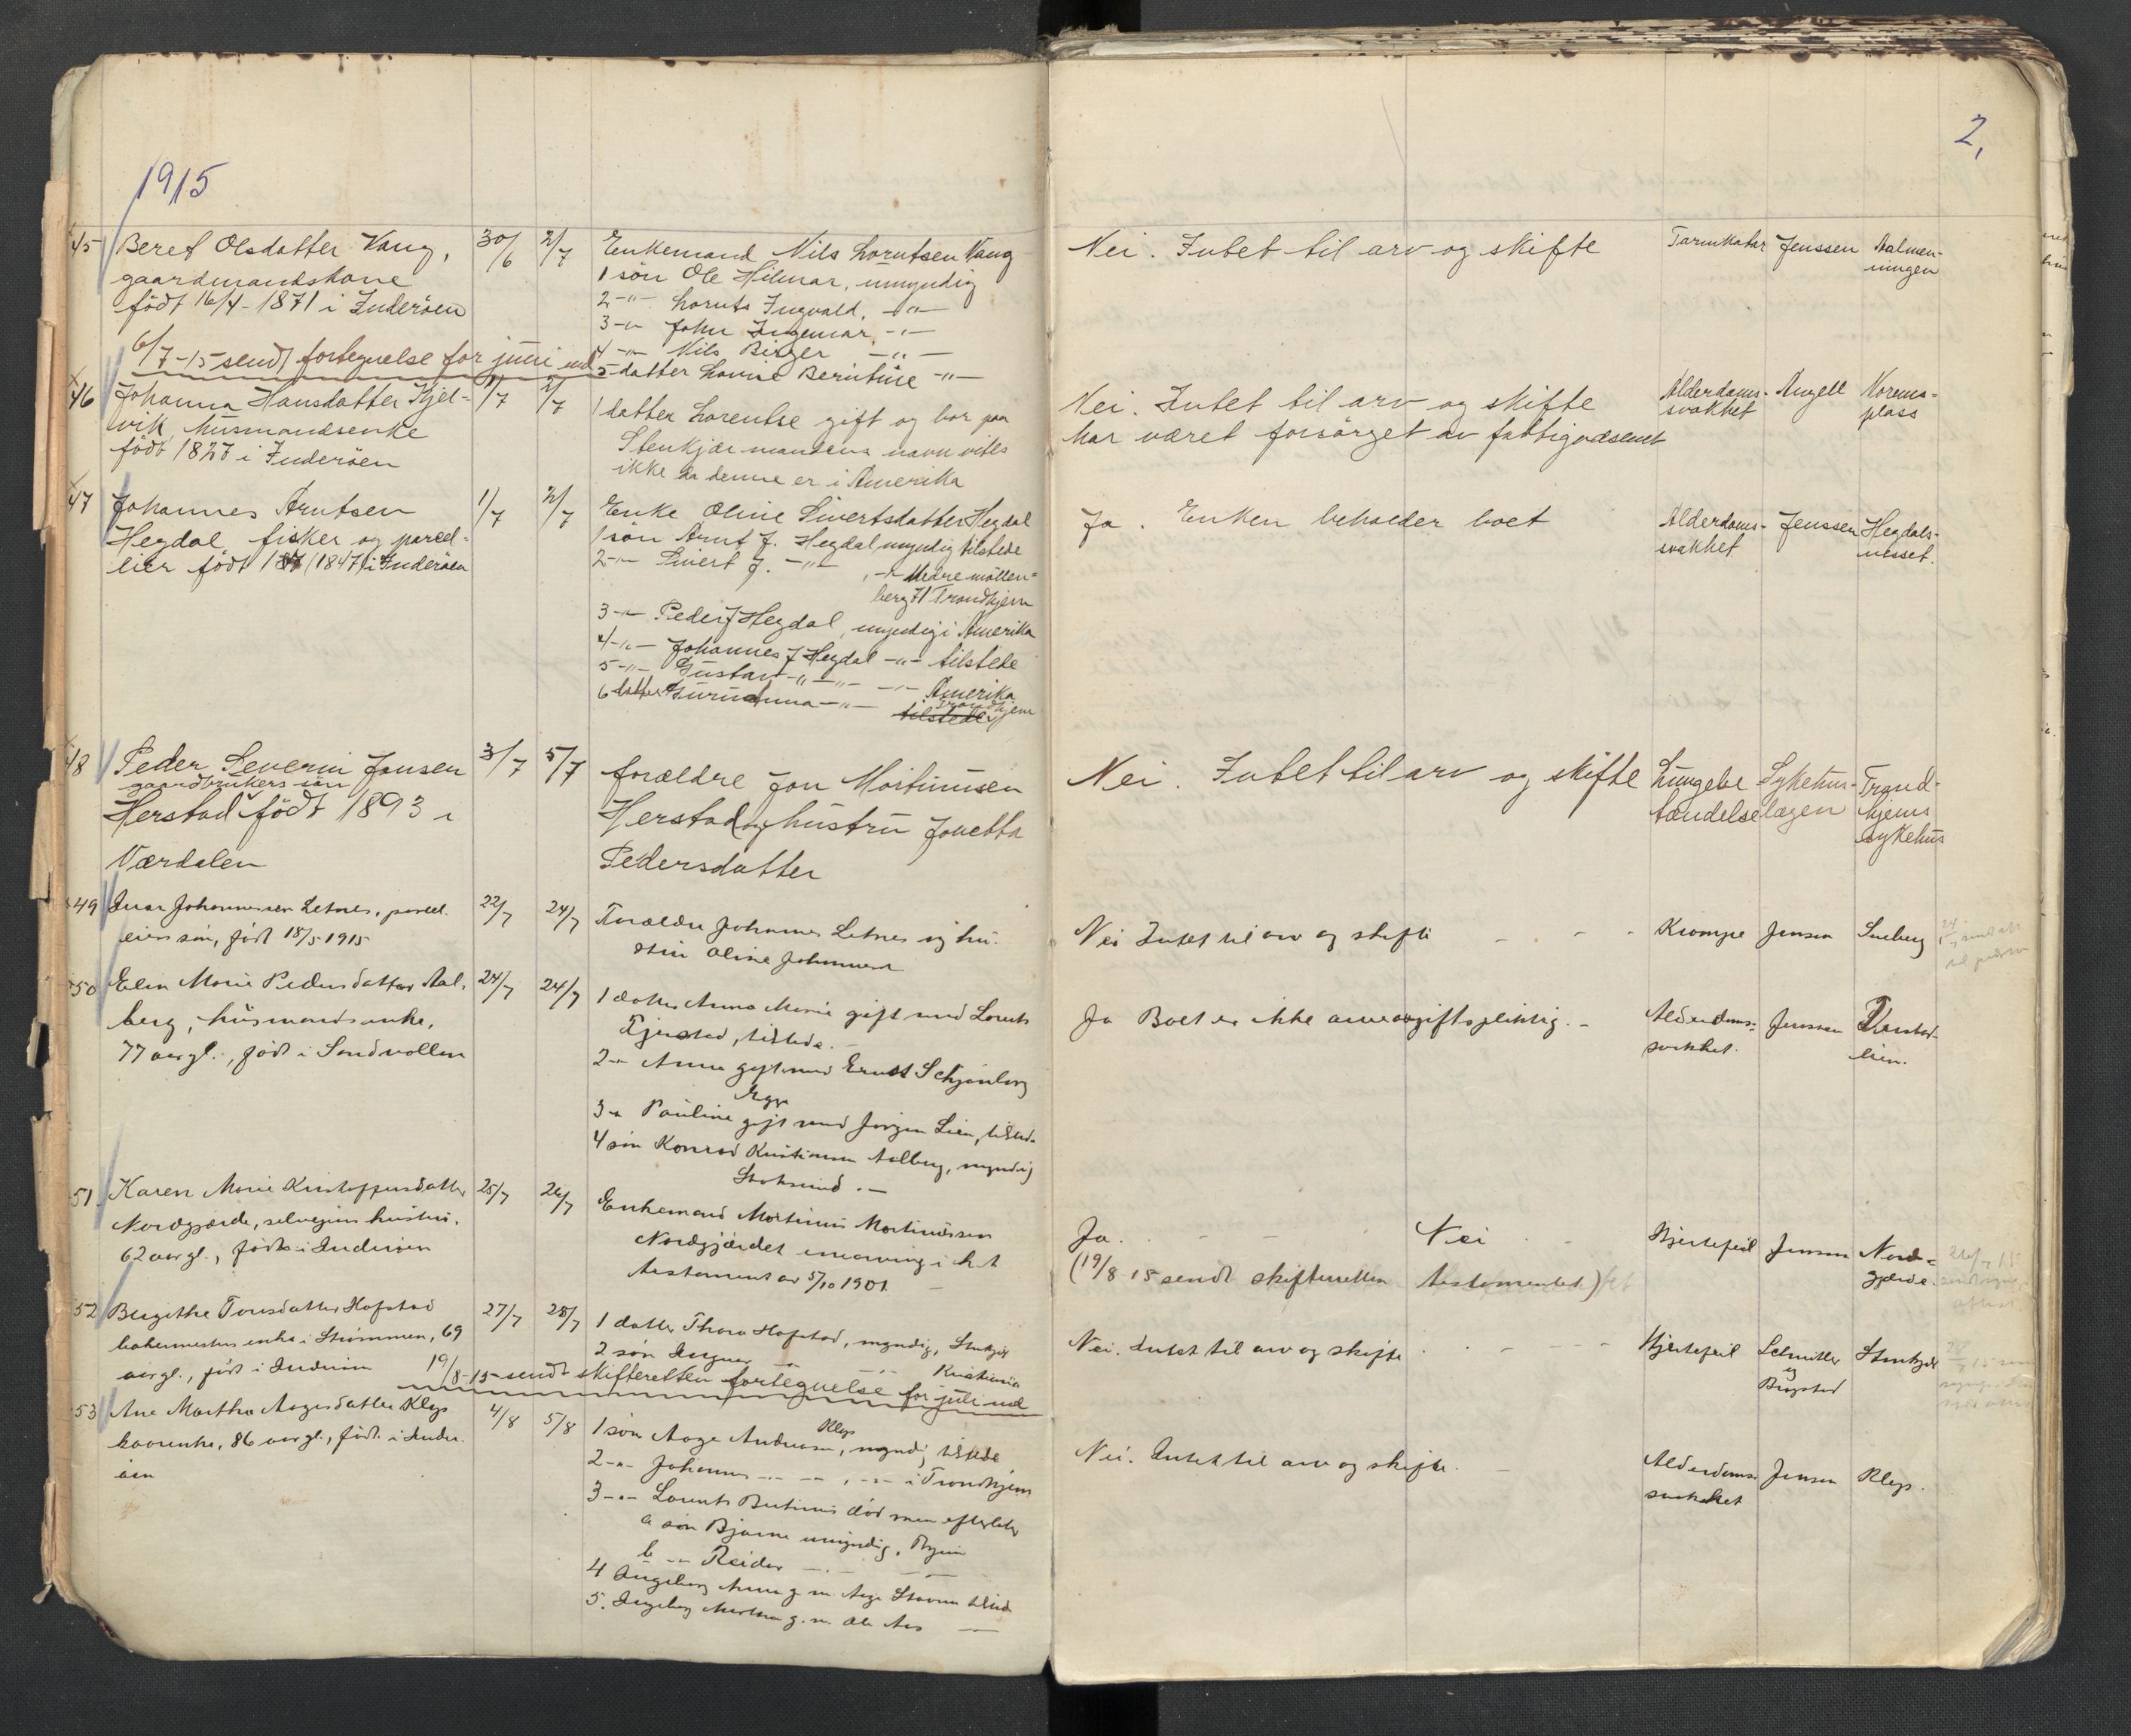 1915
2,
45 Beret Olsdatter Vang,
gaardmandskone
født 16/4-1871 i Inderøen
30/6 2/7
Enkemand Nils Lorntsen Vang
1 søn Ole Hilmar, umyndig
2 -"- Lornts Ingvald, -"-
3 -"- John Ingemar, -"-
4 -"- Nils Birger -"-
5 datter Lovise Berntine -"-
Nei. Intet til arv og skifte
Tarmkatar Jenssen Aalmen-
ningen
6/7-15 sendt fortegnelse for juni md
46 Johanna Hansdatter Kjel-
vik, husmandsenke
født 1827 i Inderøen
1/7 2/7
1 datter Lorentse gift og bor paa
Stenkjær mandens navn vites
ikke da denne er i Amerika
Nei. Intet til arv og skifte
har været forsørget av fattigvæsenet
Alderdoms-
svakhet
Angell
Norems-
plass
47 Johannes Arntsen
Hegdal, fisker og parcel-
lier født (1847) i Inderøen
1/7 2/7
Enke Oline Sivertsdatter Hegdal
1 søn Arnt J. Hegdal myndig tilstede
2 -"- Sivert J. -"- , -"- Nedre møllen-
berg 71 Trondhjem
3 -"- Peder J Hegdal, myndig i Amerika
4 -"- Johannes J Hegdal -"- tilstede
5 -"- Gustav -"- -"- -"- Amerika
6 datter Guruanna -"- tilstede Trondhjem
Ja. Enken beholder boet
Alderdoms-
svakhet
Jenssen
Hegdals-
nesset.
48 Peder Severin Jonsen
gaardbrukers søn
Herstad født 1893 i
Værdalen
3/7 5/7
forældre Jon Mortinusen
Herstad og hustru Jonetta
Pedersdatter
Nei. Intet til arv og skifte
Lungebe
tændelse
Sykehus-
lægen
Trond-
hjems
sykehus
49 Ivar Johannessen Letnes, parcel.
eiers søn, født 18/5 1915
22/7 24/7
Forældre Johannes Letnes og hu-
stru Oline Johannesd
Nei Intet til arv og skifte
Krampe Jenssen Sneberg
50 Elen Marie Pedersdatter Aal-
berg, husmandsenke,
77 aar gl., født i Sandvollan
24/7 24/7
1 datter Anna Marie gift med Lornts
Fjerstad, tilstede.
2 -"- Anna gift med Ernst Schjønberg
Egge
3 -"- Pauline gift med Jørgen Lien, tilstede
4 søn Konrad Kristiansen Aalberg, myndig
Stoksund.-
Ja Boet er ikke arveavgiftspliktig.-
Alderdoms-
svakhet.
Jenssen
lien.
51 Karen Marie Kristoffersdatter
Nordgjærde, selveiers hustru.
62 aar gl., født i Inderøen
25/7 26/7
Enkemand Mortinus Mortinussen
Nordgjærdet enearving i h.t
testament av 5/10 1901.
Ja. Nei
(19/8-15 sendt skifteretten testamentet)
Hjertefeil Jenssen Nord-
gjærde.
52 Birgithe Tonesdatter Hofstad
bakermesters enke i Strømmen, 69
aar gl., født i Inderøen
27/7 28/7
1 datter Thora Hofstad, myndig, Stenkjær
2 søn Ingvar -"- Kristiania
Nei. Intet til arv og skifte
Hjertefeil Schnitler
og
Brøgstad
Stenkjær
19/8-15 sendt skifteretten fortegnelse for juli md
53 Ane Martha Aagesdatter Klæp
kaarenke, 86 aar gl., født i Inder-
øen
4/8 5/8
1 søn Aage Andreassen Klæp, myndig tilstede
2 -"- Johannes -"- -"- , -"- i Trondhjem
3 -"- Lornts Berntinus død men efterlater
a søn Bjarne umyndig,
b -"- Reidar -"-
4 Ingeborg Anna g. m. Aage Stavrum tilstede
5. Ingeborg Martha g. m. Ole Aas -"-
Nei. Intet til arv og skifte.
Alderdoms-
svakhet
Jenssen Klæp.